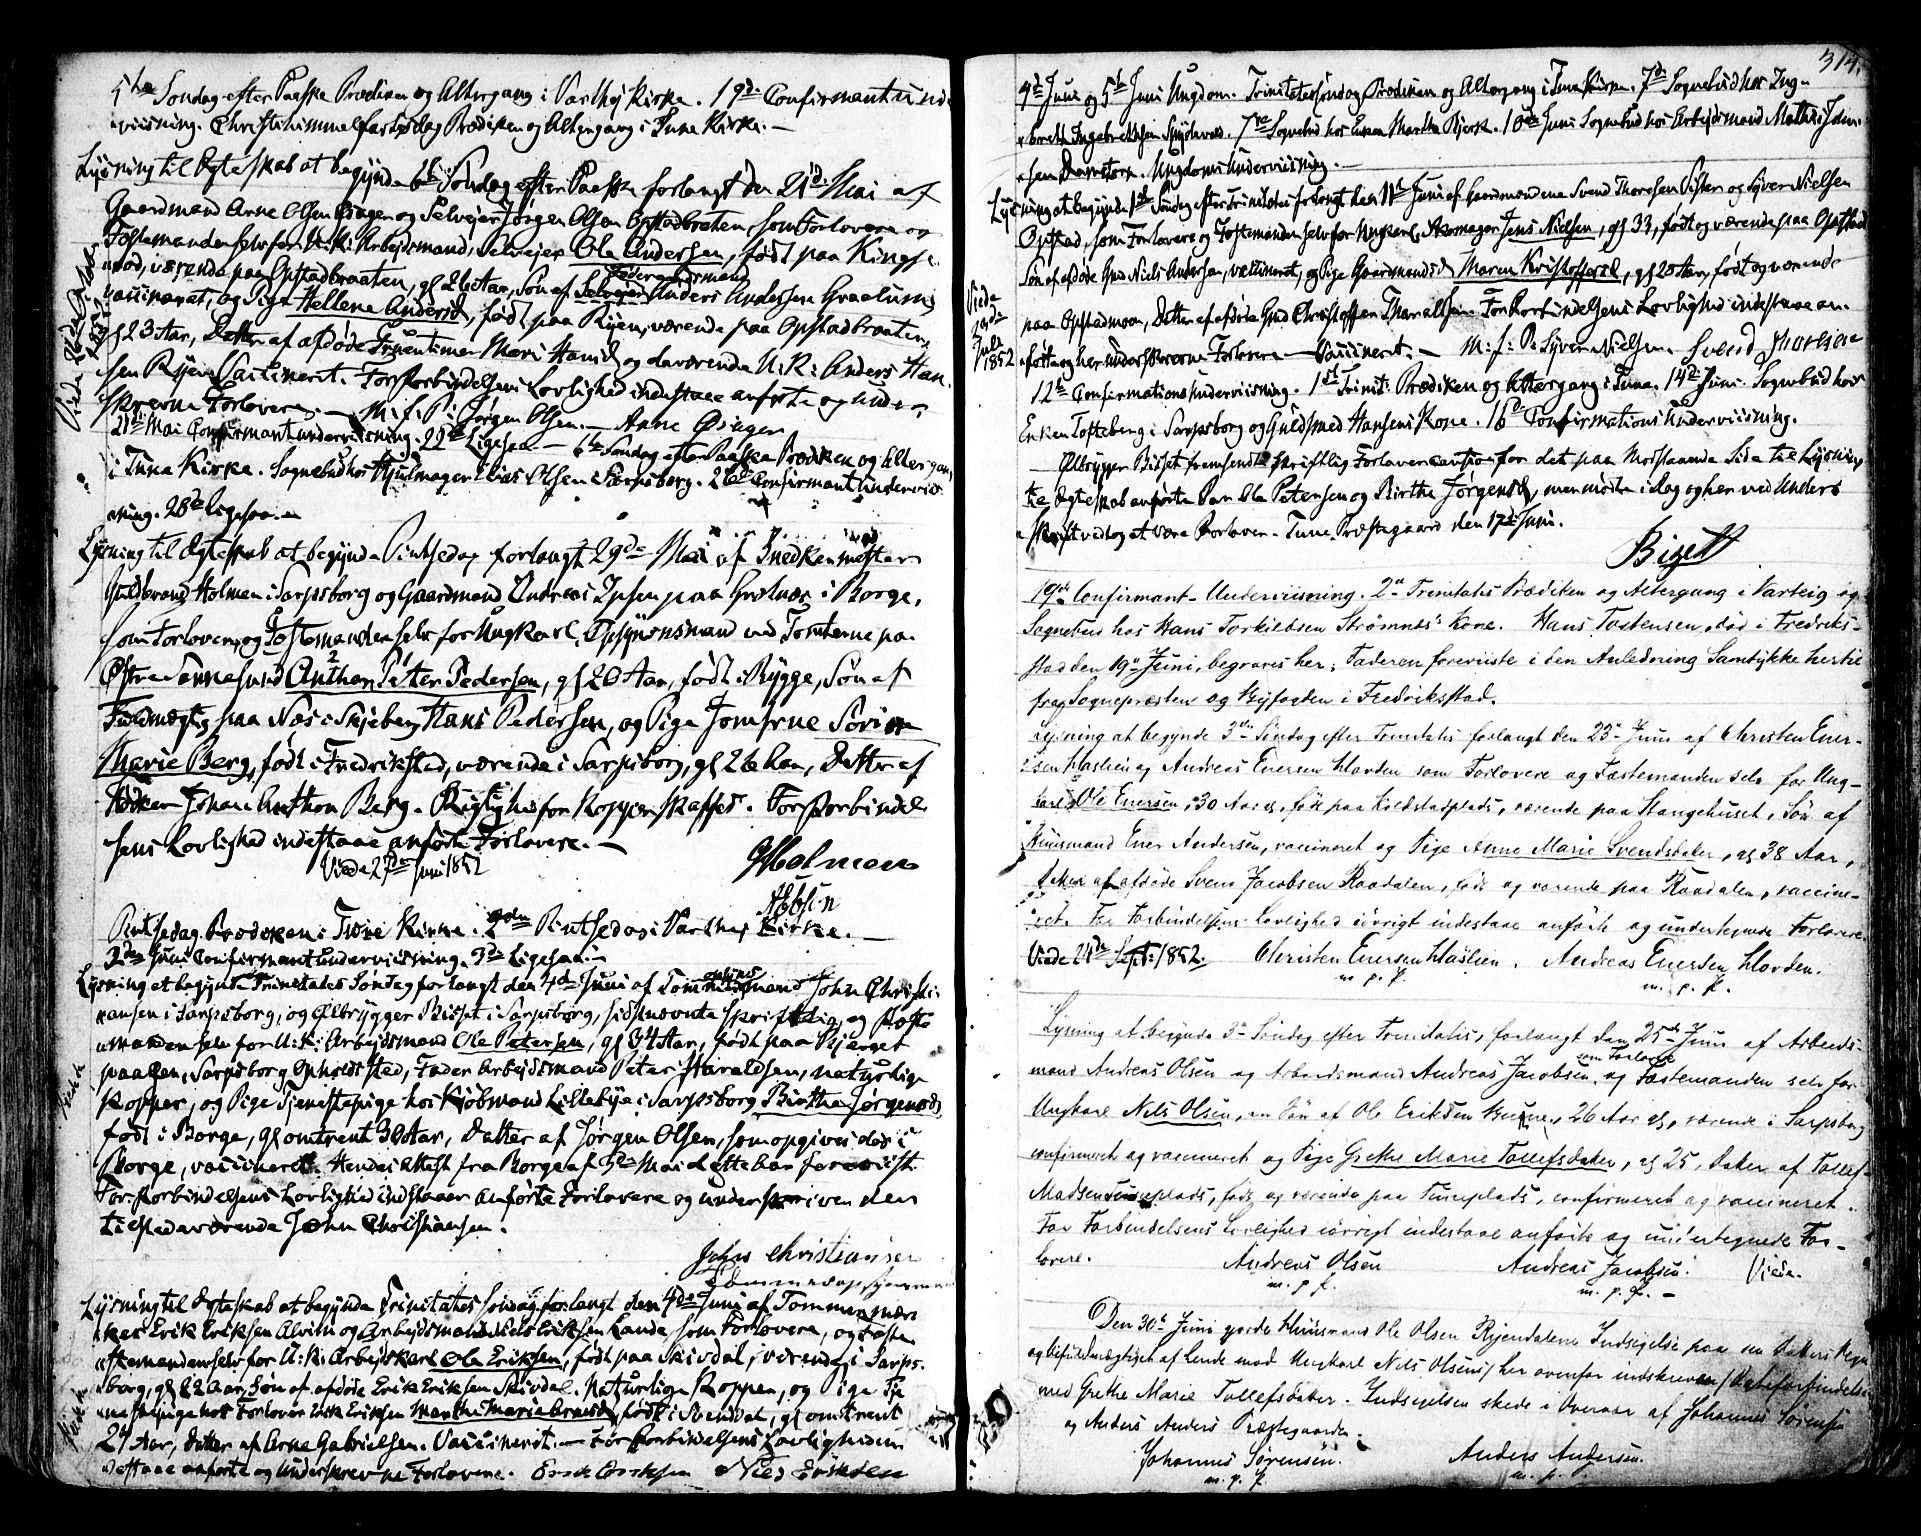 5te Søndag efter Paaske Prædiken og Altergang i Vartheg Kirke. 19de Confirmantunder
viisning. Christihimmelfartsdag Prædiken og Altergang i Tune Kirke. —
Lysning til Ægteskab at begynde 6te Søndag efter Paaske forlangt den 21de Mai af
Gaardmand Arne Olsen Øiagen og Selveier Jørgen Olsen Opstadbraten, som Forlovere og
Fæstemanden selv for U: K: Arbejdsmand, Selvejer Ole Andersen, født paa
værende paa Opstadbraaten, gl 26 Aar, Søn af Selvejer Anders Andersen Graalum
vaccineret, og Pige Hellene Andersd, født paa Ryen, værende paa Opstadbraaten
gl 23 Aar, Datter af afdøde Fruentimer Mari Hansd og daværende U: K: Anders Han
sen Ryen Vaccineret. For Forbindelsens Lovlighed indestaae anførte og under
skrevne Forlovere. — M. f. P. Jørgen Olsen. — Arne Øiagen
21de Mai Confirmantunderviisning. 22de Ligesaa — 6te Søndag efter Paaske Prædiken og Altergang
i Tune Kirke. Sognebud hos Hjulmager Elias Olsen i Sarpsborg. 26de Confirmantundervis
ning. 28de Ligesaa. —
Lysning til Ægteskab at begynde Pintsedag forlangt 29de Mai af Snedkermester
Guldbrand Holmen i Sarpsborg og Gaardmand Andreas Ipsen paa Grolnæs i Borge,
som Forlovere, og Fæstemanden selv for Ungkarl, Opsynsmand ved Tomterne paa
Østre Sannesund Anthon Peter Pedersen, gl 20 Aar, født i Rygge, Søn af
Fuldmægtig paa Næs i Skjeberg Hans Pedersen, og Pige Jomfrue Sørine
Marie Berg, født i Fredrikstad, værende i Sarpsborg, gl 26 Aar, Datter af
Høker Johan Anthon Berg. Rigtighed for Kopper skaffes. For Forbindel
sens Lovlighed indestaae anførte Forlovere. —
Viede 27de Juni 1852
GHolmen
AIbsen
Pintsedag Prædiken i Tune Kirke. 2den Pintsedag i Vartheg Kirke. —
2den Juni Confirmantunderviisning. 3de Ligesaa. —
Lysning at begynde Trinitatis Søndag forlangt den 4de Juni af Tommermand John Christi
ansen i Sarpsborg, og Ølbrygger Bisset i Sarpsborg, sidstnævnte skriftlig, og Fæste
manden selv for U: K: Arbejdsmand Ole Petersen, gl 34 Aar, født paa Bjernet
paa Gen, Sarpsborg Opholdssted, Fader Arbejdsmand Peter Haraldsen, naturlige
Kopper, og Pige Tjenestepige hos Kjøbmand Lillebye i Sarpsborg Birthe Jørgensd,
født i Borge, gl omtrent 30 Aar, Datter af Jørgen Olsen, som opgives død i
Borge, vaccineret. Hendes Attest fra Borge af 3de Mai dette har foreviist.
For Forbindelsens Lovlighed indstaaer anførte Forlovere og underskriven den
tilstedeværende John Christiansen.
John Christiansen
Lysning til Ægteskab at begynde Trinitatis Søndag forlangt den 4de Juni af Tommermær
ker Erik Eriksen Alvim og Arbejdsmand Niels Eriksen Lande, som Forlovere, og Fæste
manden selv for U: K: Arbejdskarl Ole Eriksen, født paa Skivdal, værende i Sarps-
borg, gl 22 Aar, Søn af afdøde Erik Eriksen Skivdal. Naturlige Kopper, og Pige Tje
nestepige hos Forlover Erik Eriksen Marthe Marie Arnesd, født i Svendal, gl omtrent
24 Aar, Datter af Arne Gabrielsen. Vaccineret. — For Forbindelsens Lovlighed in
destaae anførte og underskrevne Forlovere. Erik Eriksen Niels Eriksen
314.
4de Juni og 5te Juni Ungdom. Trinitatissøndag Prædiken og Altergang i Tune Kirke. 7de Sognebud hos Inge
breth Ingebrethsen. 7de Sognebud hos Enken Marthe Bjerk. 10de Juni Sognebud hos Arbejdsmand Mathis Johan
sen Damstok. Ungdoms Underviisning. —
Lysning at begynde 1ste Søndag efter Trinitatis forlangt den 11te Juni af Gaardmændene Svend Thoresen Vister og Syver Nielsen
Opstad, som Forlovere og Fæstemanden selv for Ungkarl, Skomager Jens Nielsen, gl 33, født og værende paa Opstad
Søn af afdøde Gmd Niels Andersen, vaccineret, og Pige Gaardmandsd Maren Kristoffersd, gl 20 Aar, født og værende
paa Opstadmoen, Datter af afdøde Gmd Christoffer Tharaldsen. For Forbindelsens Lovlighed indestaae an
førte og her underskrevne Forlovere — Vaccineret. — M: f: P. Syver Nielsen. Svend Thoresen
Viede
Juli
1852
12te Confirmationsunderviisning. 1ste Trinit: Prædiken og Altergang i Tune. 14de Juni. Sognebud hos
Enken Tofteberg i Sarpsborg og Guldsmed Hansens Kone. 16de Confirmationsunderviisning.
Ølbrygger Bisset fremsendte skriftlig Forlovercaution for det paa modstaaende Side til Lysning
til Ægteskab anførte Par Ole Petersen og Birthe Jørgensd, men mødte idag og her ved Under
skrift vedtog at være Forlover. Tune Præstegaard den 17de Juni.
Bigett
19de Confirmant-Underviisning. 2den Trinitatis Prædiken og Altergang i Varteig og
Sognebud hos Hans Torkildsen Strømnæs' Kone. Hans Tostensen, død i Fredriks-
stad den 19de Juni, begraves her; Faderen foreviiste i den Anledning Samtykke hertil
fra Sognepræsten og Byfogden i Fredriksstad.
Lysning at begynde 3die Søndag efter Trinitatis forlangt den 23de Juni af Christen Ener-
sen Haslien og Andreas Enersen Hovden som Forlovere og Fæstemanden selv for Ung-
karl Ole Enersen, 30 Aar gl, født paa Koldstadplads, værende paa Stangehuset, Søn af
Huusmand Ener Andersen, vaccineret og Pige Anne Marie Svendsdatter, gl 38 Aar,
Datter af afdøde Svend Jacobsen Raadalen, født og værende paa Raadalen, vaccine-
ret. For Forbindelsens Lovlighed iøvrigt indestaae anførte og undertegnede Forlovere.
Viede 24de Sept: 1852. Christen Enersen Haslien. Andreas Enersen Hovden.
m. p. f. m. p. f.
Lysning at begynde 3die Søndag efter Trinitatis, forlangt den 25de Juni af Arbeids-
mand Andreas Olsen og Arbeidsmand Andreas Jacobsen som Forlovere og Fæstemanden selv for
Ungkarl Nils Olsen, en Søn af Ole Eriksen, 26 Aar gl, værende i Sarpsborg
confirmeret og vaccineret og Pige Grethe Marie Tollefsdatter, gl 25, Datter af Tollef
Madsen Tuneplads, født og værende paa Tuneplads, confirmeret og vaccineret.
For Forbindelsens Lovlighed iøvrigt indestaae anførte og undertegnede For-
lovere. Andreas Olsen Andreas Jacobsen. Viede.
m. p. f. m. p. f. —
Den 30te Juni gjorde Huusmand Ole Olsen Ryendalen Indsigelse paa sin Datters Vegne
og befuldmægtiget af hende mod Ungkarl Nils Olsens (her ovenfor indskreven) Ægteforbindelse
med Grethe Marie Tollefsdatter. Indsigelsen skede i Overvær af Johannes Sørensen
og Anders Anders Præstegaarden.
Johannes Sørensen. Anders Andersen.
m. p. f. m. p.